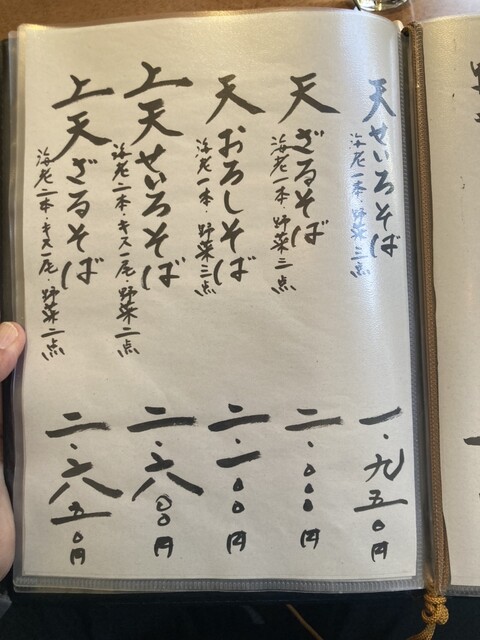 天せいろそば
海老一本・野菜三点
一・九五〇円
天ざるそば
海老一本・野菜三点
二・〇〇〇円
天おろしそば
海老一本・野菜三点
二・一〇〇円
上天せいろそば
海老二本・キス一尾・野菜二点
二・六〇〇円
上天ざるそば
海老二本・キス一尾・野菜二点
二・六五〇円